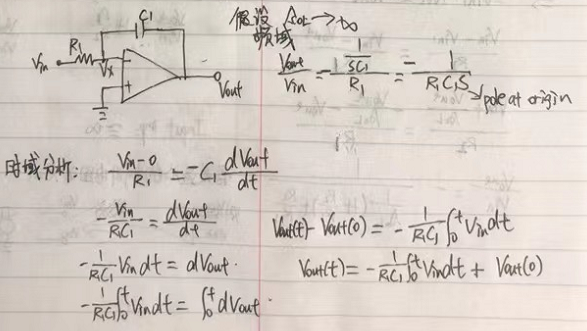 C1
R1
Vin
Vx
-
+
Vout
假设 A0L→∞
频域
Vout/Vin = (1/SC1)/R1 = - 1/(R1C1S)
pole at origin
时域分析: (Vin-0)/R1 = -C1 dVout/dt
- Vin/(R1C1) = dVout/dt
- 1/(R1C1) Vin dt = dVout.
- 1/(R1C1) ∫₀ᵗ Vin dt = ∫₀ᵗ dVout.
Vout(t) - Vout(0) = - 1/(R1C1) ∫₀ᵗ Vin dt
Vout(t) = - 1/(R1C1) ∫₀ᵗ Vin dt + Vout(0)